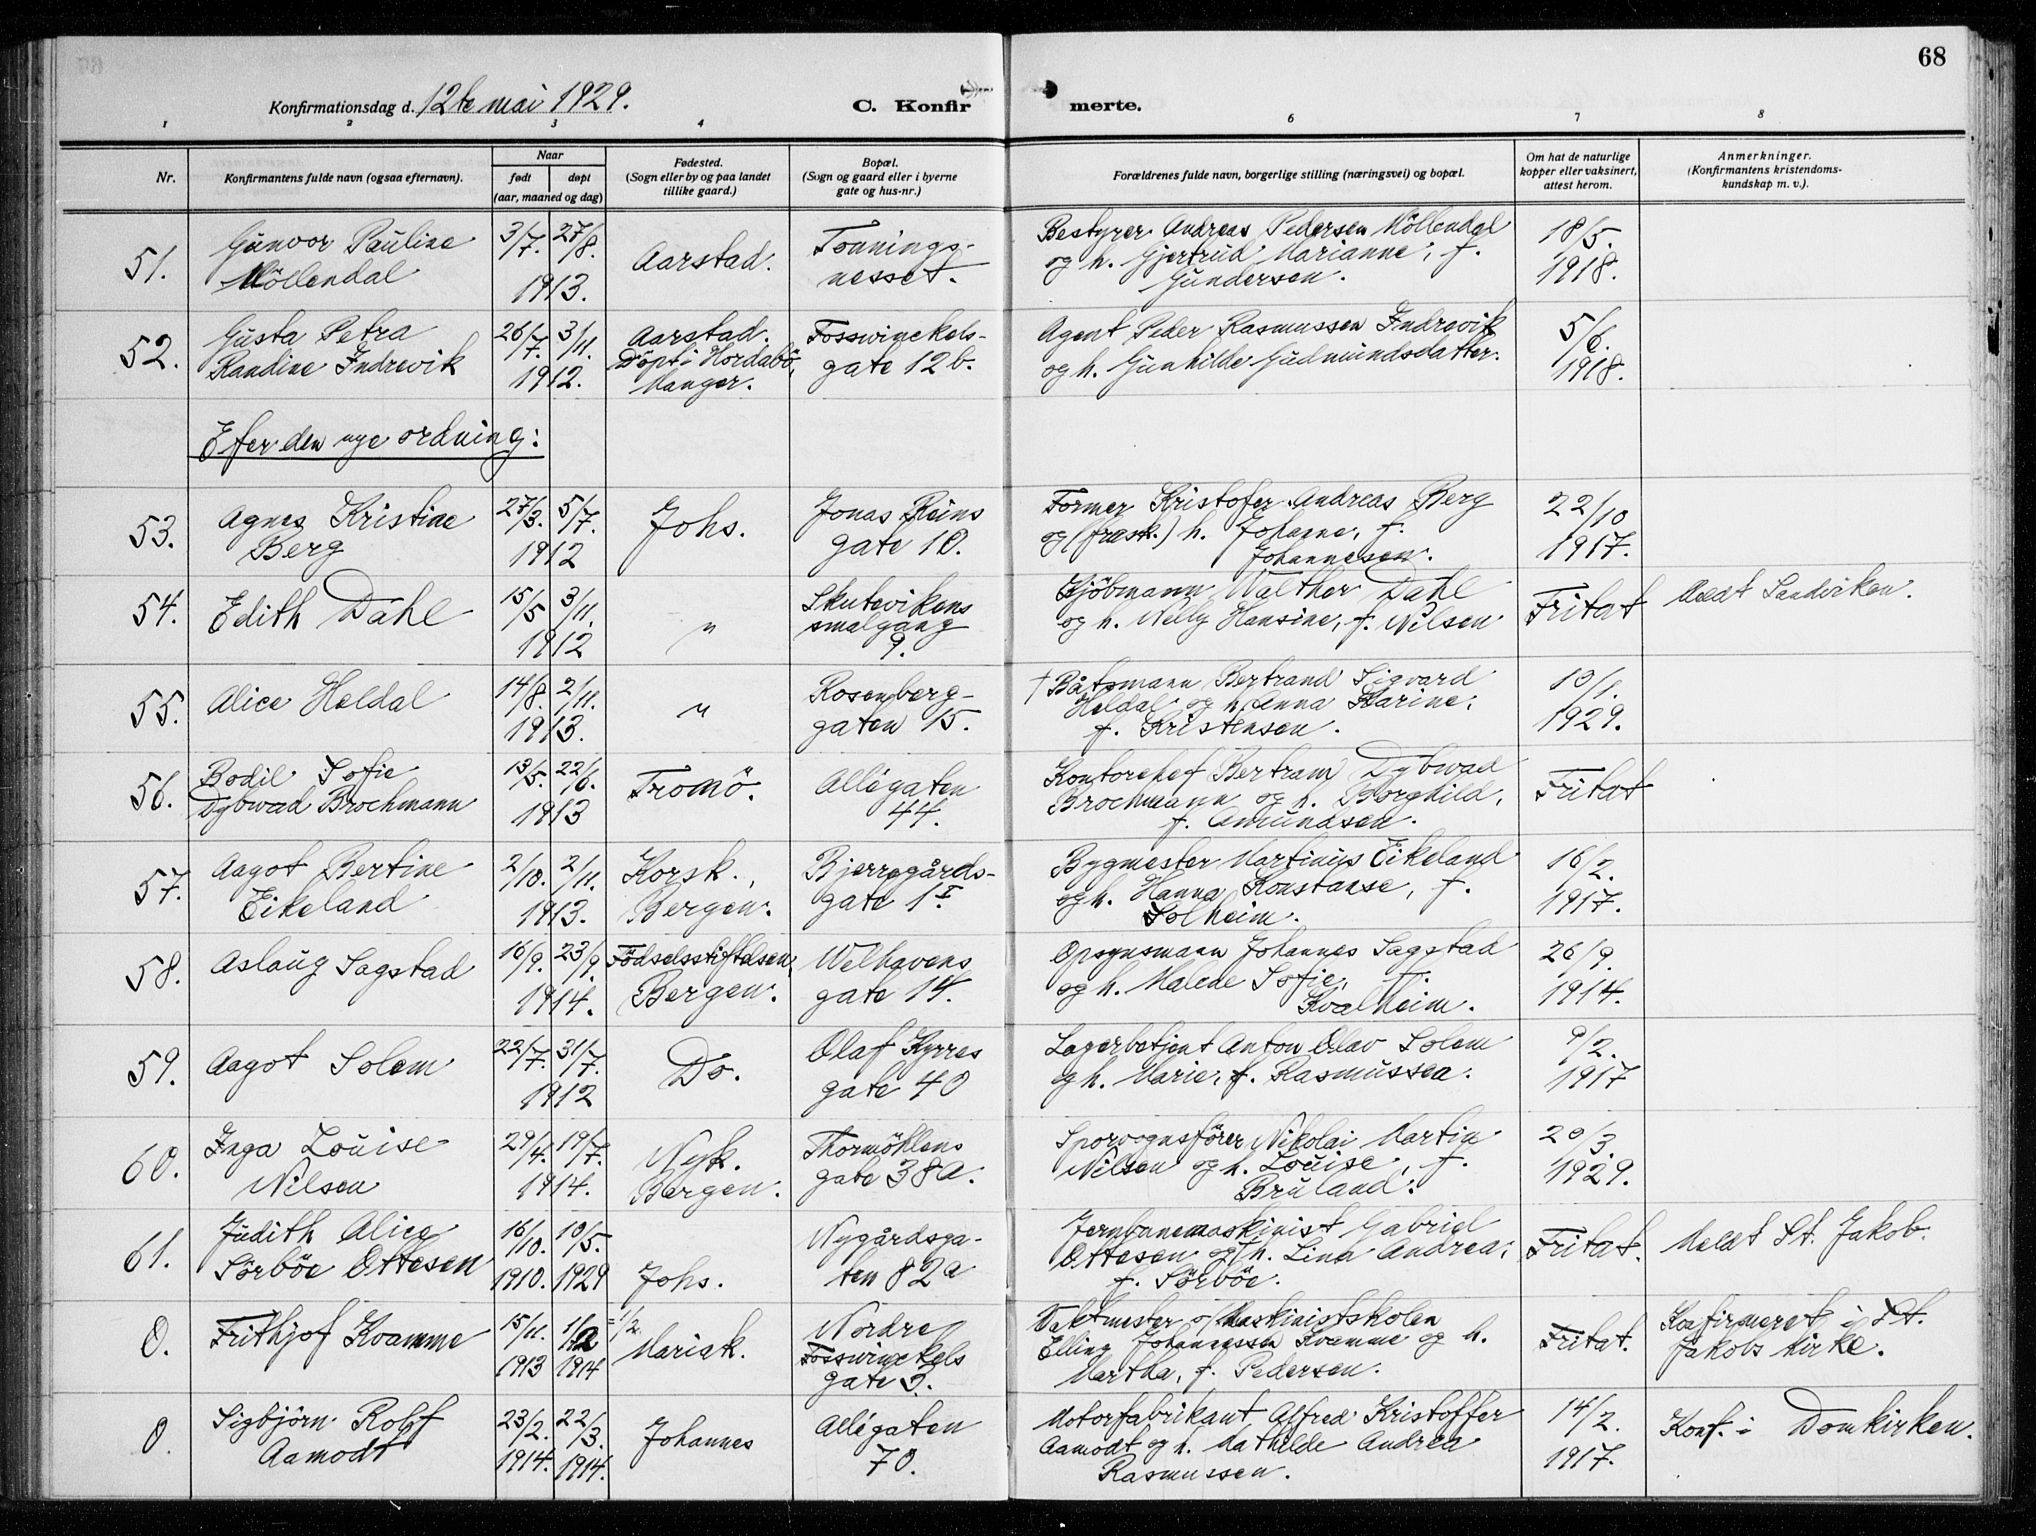 68
Konfirmationsdag d. 12te mai 1929. C. Konfir merte.
1 2 3 4 6 7 8
Nr.
Konfirmantens fulde navn (ogsaa efternavn).
Naar
født døpt
(aar, maaned og dag)
Fødested.
(Sogn eller by og paa landet
tillike gaard.)
Bopæl.
(Sogn og gaard eller i byerne
gate og hus-nr.)
Forældrenes fulde navn, borgerlige stilling (næringsvei) og bopæl.
Om hat de naturlige
kopper eller vaksinert,
attest herom.
Anmerkninger.
(Konfirmantens kristendoms-
kundskap m. v.).
51.
Gunvor Pauline
Möllendal
3/7. 27/8.
1913.
Aarstad.
Tonnings-
nesset.
Bestyrer Andreas Pedersen Möllendal
og h. Gjertrud Marianne, f.
Gundersen.
18/5.
1918.
52.
Gusta Petra
Randine Indrevik
26/7. 3/11.
1912.
Aarstad.
Döpt i Hordabö,
Manger.
Fosswinckels-
gate 12 b.
Agent Peder Rasmussen Indrevik
og h. Gunhilde Gudmundsdatter.
5/6.
1918.
Efer den nye ordning:
53.
Agnes Kristine
Berg
27/3. 5/7.
1912
Johs.
Jonas Reins
gate 10.
Former Kristofer Andreas Berg
og (frask.) h. Johanne, f.
Johannesen.
22/10
1917.
54.
Edith Dahl
15/5 3/11.
1912
"
Skutevikens
smalgang
9.
Kjöbmann Walther Dahl
og h. Nelly Hansine, f. Nilsen
Fritat
Meldt Sandviken.
55.
Alice Heldal
14/8. 2/11.
1913.
"
Rosenberg-
gaten 15.
† Båtsmann Bertrand Sigvard
Heldal og h. Anna Karine,
f. Kristensen.
10/1.
1929.
56.
Bodil Sofie
Dybwad Brochmann
13/5. 22/6.
1913
Tromö.
Allégaten
44.
Kontorchef Bertram Dybwad
Brochmann og h. Borghild,
f. Amundsen.
Fritat
57.
Aagot Bertine
Eikeland
2/10. 2/11.
1913.
Korsk.,
Bergen.
Bjerregårds-
gate 1 I
Bygmester Martinius Eikeland
og h. Hanna Konstanse, f.
Solheim.
16/2.
1917.
58.
Aslaug Sagstad
16/9. 23/9.
1914.
Födselsstiftelsen,
Bergen.
Welhavens
gate 14.
Opsynsmann Johannes Sagstad
og h. Malene Sofie, f.
Kvalheim.
26/9.
1914.
59.
Aagot Solem
22/7. 31/7.
1912
Do.
Olaf Kyrres
gate 40
Lagerbetjent Anton Olav Solem
og h. Marie, f. Rasmussen.
9/2.
1917
60.
Inga Louise
Nilsen
29/4. 19/7.
1914.
Nyk.
Bergen.
Thormöhlens
gate 38a.
Sporvognsförer Nikolai Martin
Nilsen og h. Louise, f.
Bruland.
20/3.
1929.
61.
Judith Alice
Sörböe Ottesen
16/10. 10/5.
1910. 1929
Johs.
Nygårdsga-
ten 82a
Jernbanemaskinist Gabriel
Ottesen og h. Lina Andrea,
f. Sörböe.
Fritat.
Meldt St. Jakob.
0.
Frithjof Kvamme
15/11. 1/2 = 1/2.
1913 1914
Mariak.
Nordre
Fosswinckels
gate 3.
Vektmester v/ Maskinistskolen
Elling Johannessen Kvamme og h.
Martha, f. Pedersen.
Fritat.
Konfirmeret i St.
Jakobs kirke.
0.
Sigbjörn Rolf
Aamodt
23/2. 22/3.
1914. 1914.
Johannes
Allégaten
70.
Motorfabrikant Alfred Kristoffer
Aamodt og h. Mathilde Andrea
Rasmussen.
14/2.
1917.
Konf. i Domkirken.